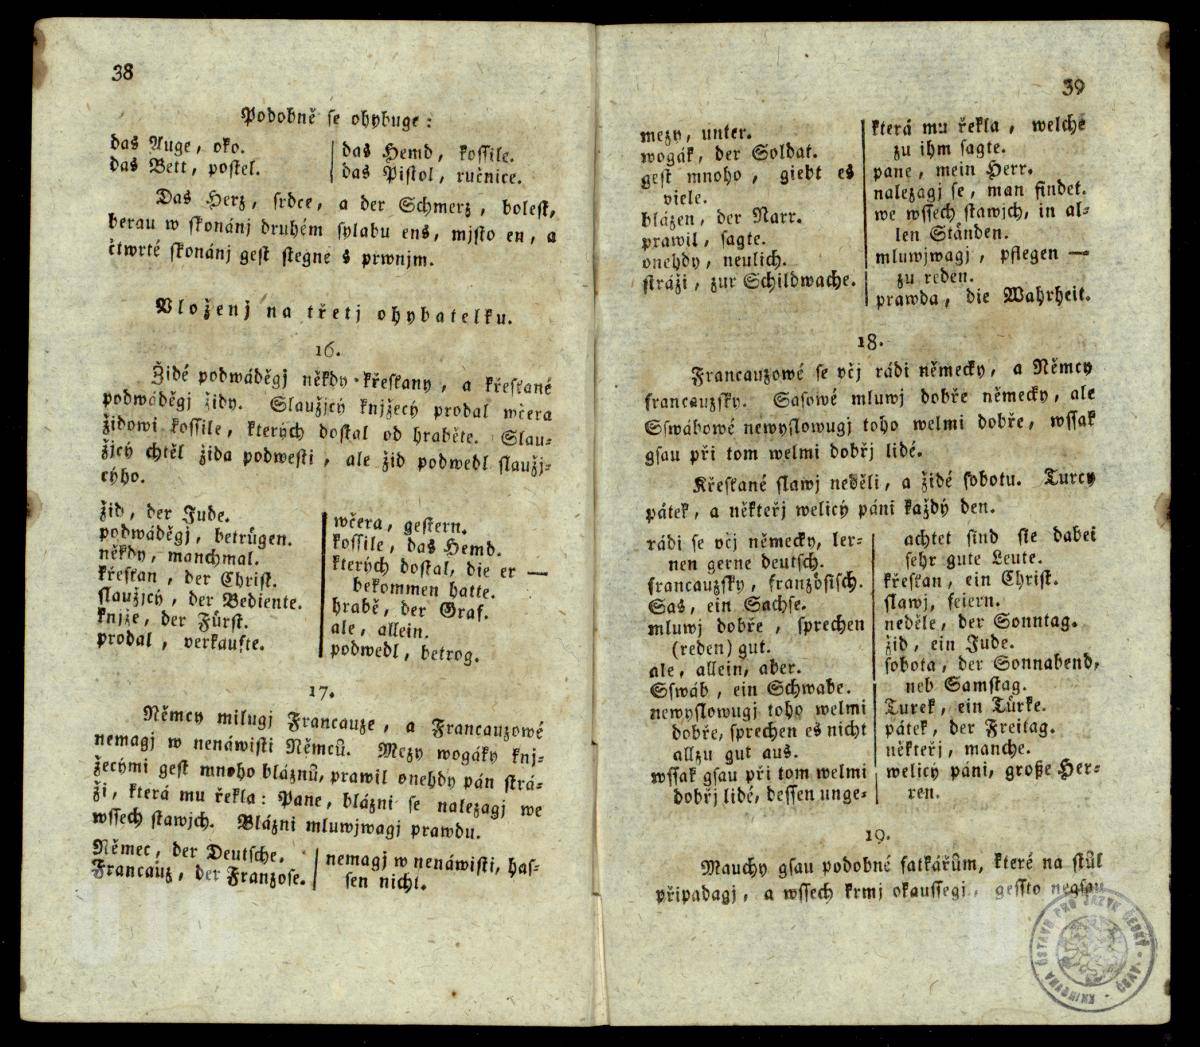 38
Podobně se ohybuge:
das Auge, oko.
das Bett, postel.
das Hemd, kossile.
das Pistol, ručnice.
Das Herz, srdce, a der Schmerz, bolest,
berau w skonánj druhém sylabu ens, mjsto en, a
čtwrté skonánj gest stegné s prwnjm.
Vloženj na třetj ohybatelku.
16.
Židé podwáděgj někdy křesťany, a křesťané
podwáděgj židy. Slaužjcý knjžecý prodal wčera
židowi kossile, kterých dostal od hraběte. Slau-
žjcý chtěl žida podwesti, ale žid podwedl slaužj-
cýho.
žid, der Jude.
podwáděgj, betrügen.
někdy, manchmal.
křesťan, der Christ.
slaužjcý, der Bediente.
knjže, der Fürst.
prodal, verkaufte.
wčera, gestern.
kossile, das Hemd.
kterých dostal, die er —
bekommen hatte.
hrabě, der Graf.
ale, allein.
podwedl, betrog.
17.
Němcy milugj Francauze, a Francauzowé
nemagj w nenáwisti Němců. Mezy wogáky knj-
žecými gest mnoho bláznů, prawil onehdy pán strá-
ži, která mu řekla: Pane, blázni se nalezagj we
wssech stawjch. Blázni mluwjwagj prawdu.
Němec, der Deutsche.
Francauz, der Franzose.
nemagj w nenáwisti, has-
sen nicht.
39
mezy, unter.
wogák, der Soldat.
gest mnoho, giebt es
viele.
blázen, der Narr.
prawil, sagte.
onehdy, neulich.
stráži, zur Schildwache.
která mu řekla, welche
zu ihm sagte.
pane, mein Herr.
nalezagj se, man findet.
we wssech stawjch, in al-
len Ständen.
mluwjwagj, pflegen —
zu reden.
prawda, die Wahrheit.
18.
Francauzowé se včj rádi německy, a Němcy
francauzsky. Sasowé mluwj dobře německy, ale
Sswábowé newyslowugj toho welmi dobře, wssak
gsau při tom welmi dobřj lidé.
Křesťané slawj neděli, a židé sobotu. Turcy
pátek, a někteřj welicý páni každý den.
rádi se včj německy, ler-
nen gerne deutsch.
francauzsky, französisch.
Sas, ein Sachse.
mluwj dobře, sprechen
(reden) gut.
ale, allein, aber.
Sswáb, ein Schwabe.
newyslowugj toho welmi
dobře, sprechen es nicht
allzu gut aus.
wssak gsau při tom welmi
dobřj lidé, dessen unge-
achtet sind sie dabei
sehr gute Leute.
křesťan, ein Christ.
slawj, feiern.
neděle, der Sonntag.
žid, ein Jude.
sobota, der Sonnabend,
neb Samstag.
Turek, ein Türke.
pátek, der Freitag.
někteřj, manche.
welicý páni, große Her-
ren.
19.
Mauchy gsau podobné fatkářům, které na stůl
připadagj, a wssech krmj okaussegj, gessto negsau
KNIHOVNA ÚSTAVU PRO JAZYK ČESKÝ · ČSAV ·